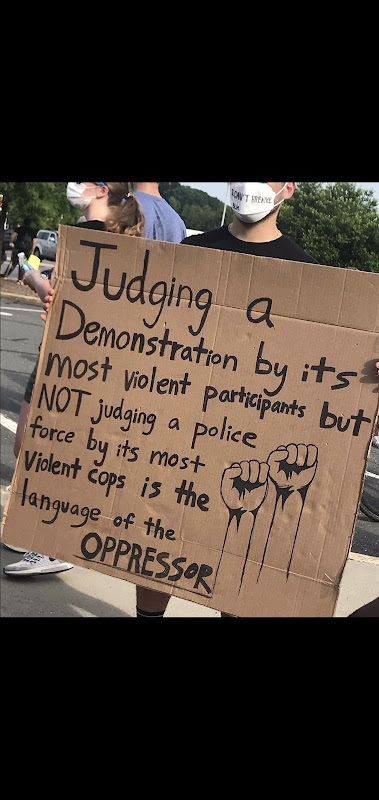 I CAN'T BREATHE
Judging a
Demonstration by its
most violent participants but
NOT judging a police
force by its most
Violent cops is the
language of the
OPPRESSOR